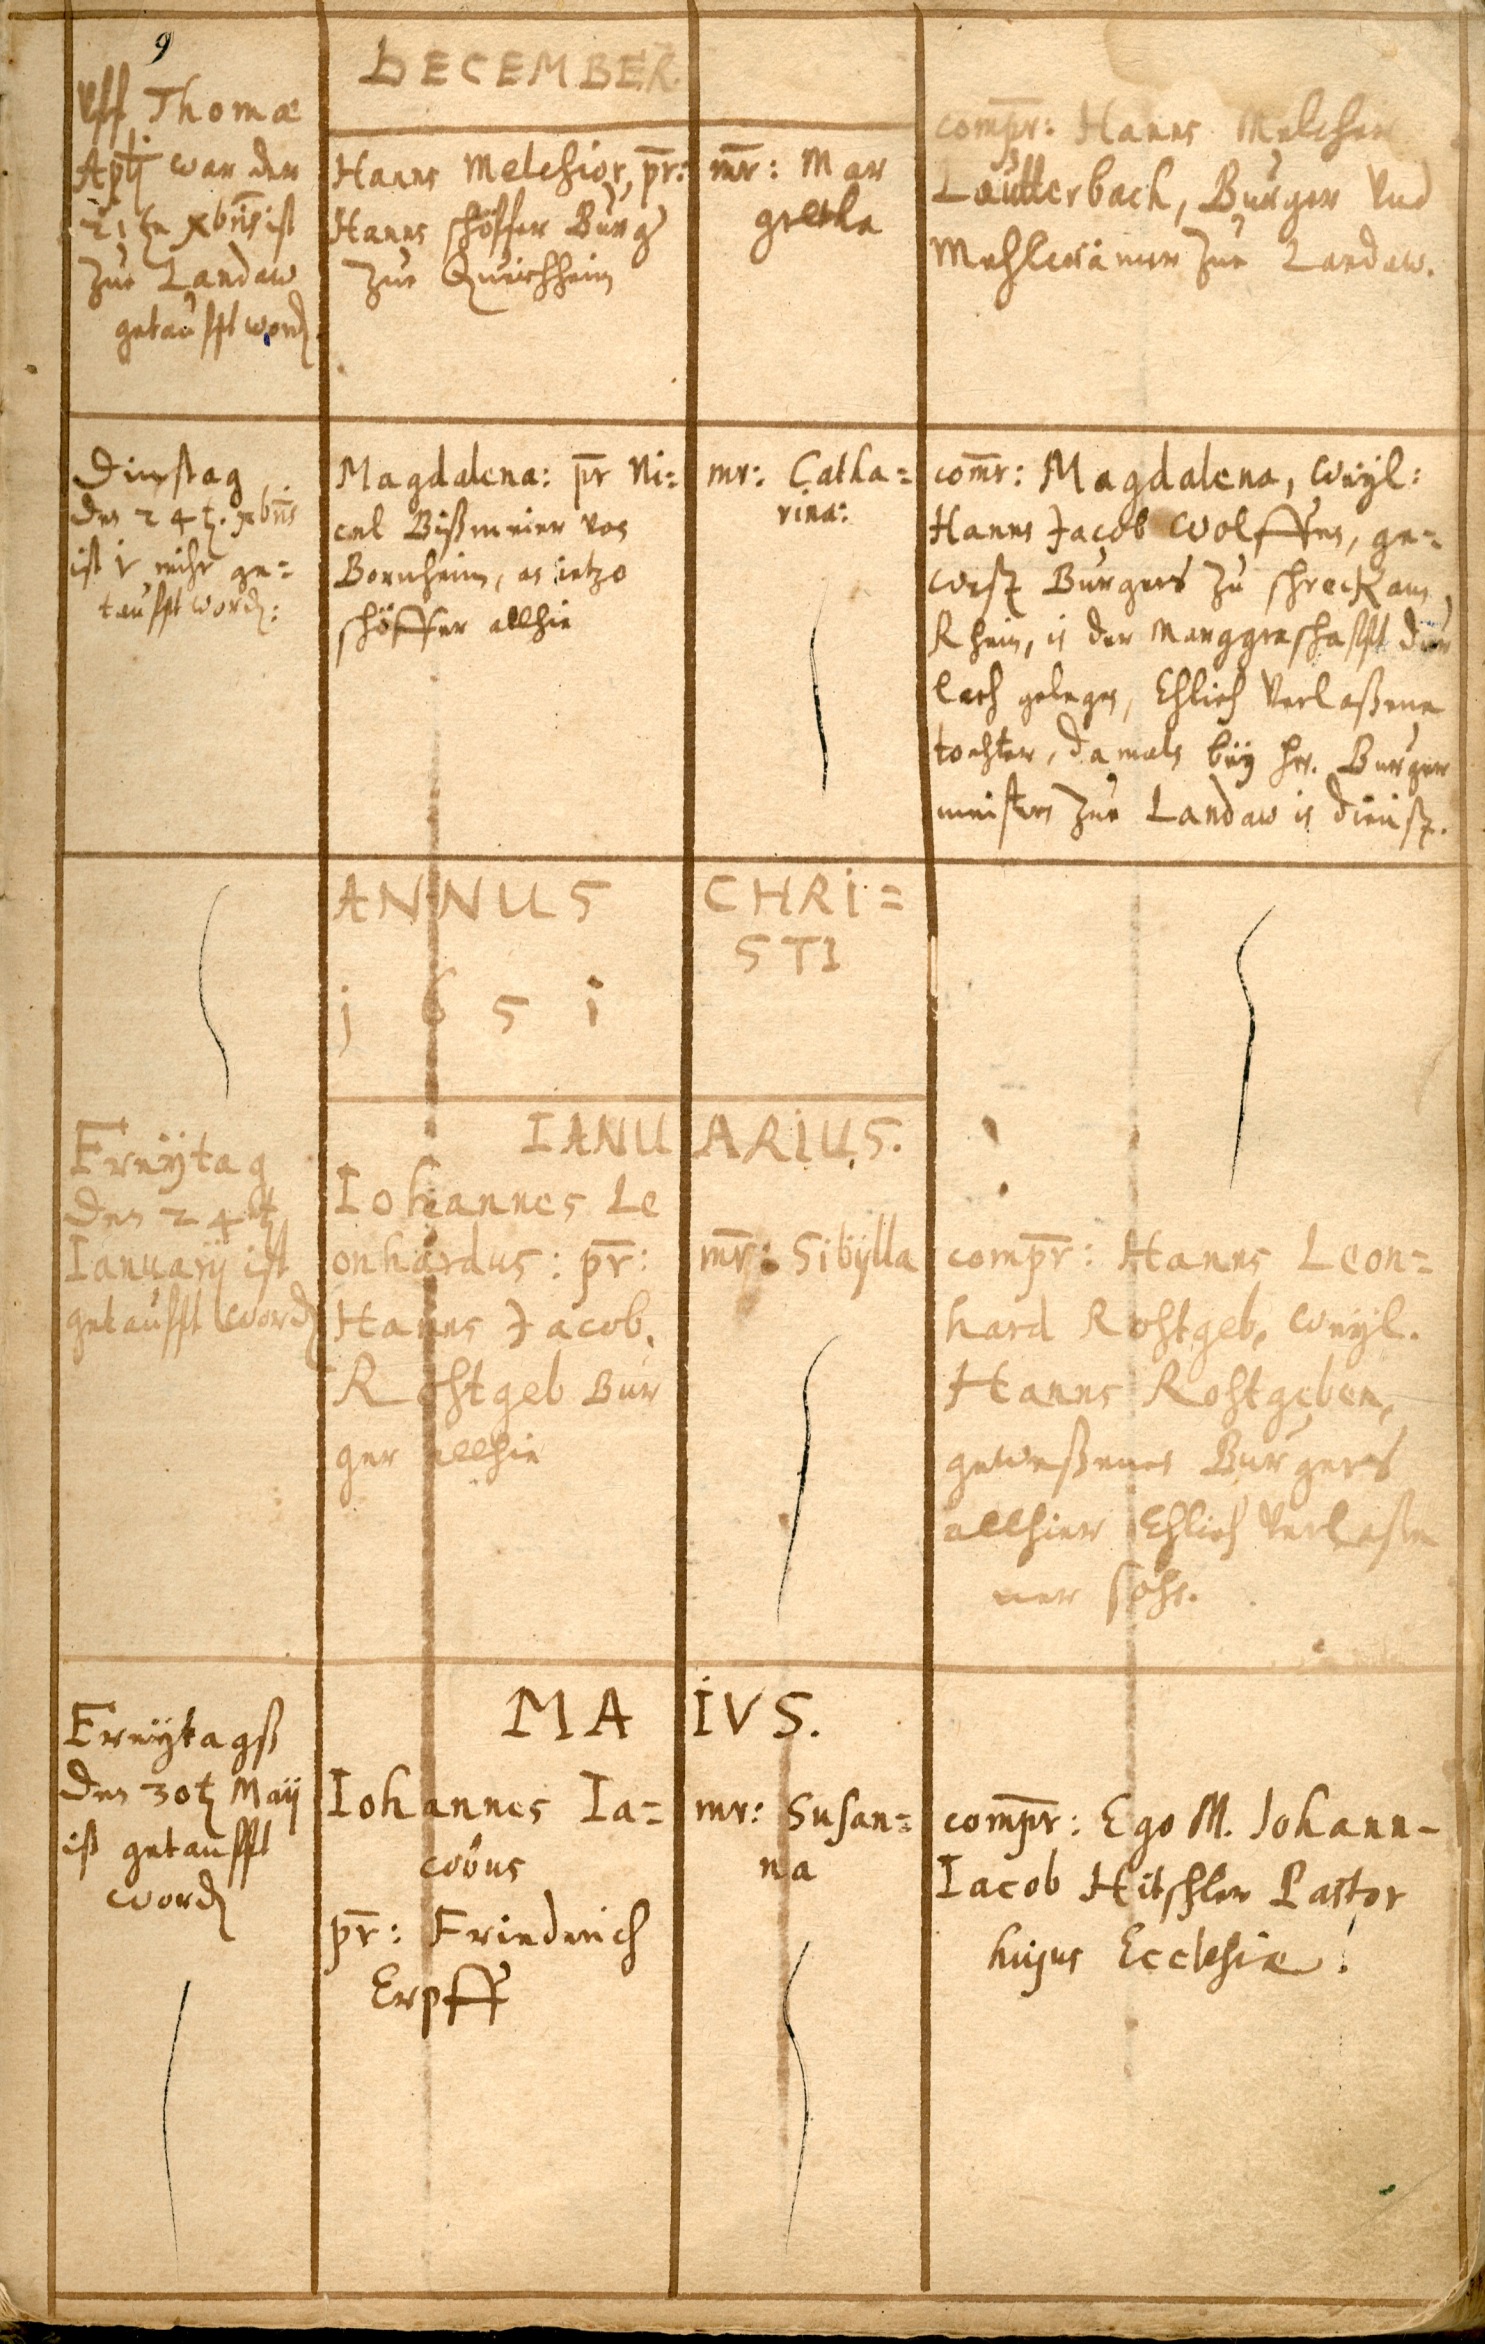 9
DECEMBER
Uff Thomæ
Aptj war der
21 tn xbris ist
zue Landaw
getaufft word.
Hanns Melchior, pr:
Hanns schöffer Burg
zue Queichheim
mr: Mar
gretha
compr: Hanns Melchior
Lautterbach, Burger vnd
Mehlwämer zue Landaw.
Dinstag
den 24t. xbris
ist
getaufft word:
Magdalena: pr Ni=
cel Bißmeier von
Bornheim, ietzo
schöffer allhie
mr: Catha=
rina:
comr: Magdalena, weyl:
Hanns Jacob Wolffen, ge=
west Burgers zu schreck am
Rhein, in der Marggraschafft dur
lach gelegen, Ehlich verlaßene
tochter, damals bey hr. Burger
meisters zue Landaw in dienst.
ANNUS CHRI=
STI
j 6 5 i
IANUARIUS.
Freytag
den 24t
Ianuarij ist
getaufft word
Iohannes Le
onhardus: pr:
Hanns Jacob.
Rohtgeb Bur
ger allhie
mr: Sibylla
compr: Hanns Leon=
hard Rohtgeb, weyl.
Hanns Rohtgeben,
geweßenen Burgers
allhier Ehlich verlaße
ner sohn.
MAIVS.
Freytagß
den 30t Maij
ist getaufft
word
Iohannes Ia=
cobus
pr: Friederich
Erpff
mr: Susan=
na
compr: Ego M. Iohann-
Iacob Hitschler Pastor
hujus Ecclesiæ!